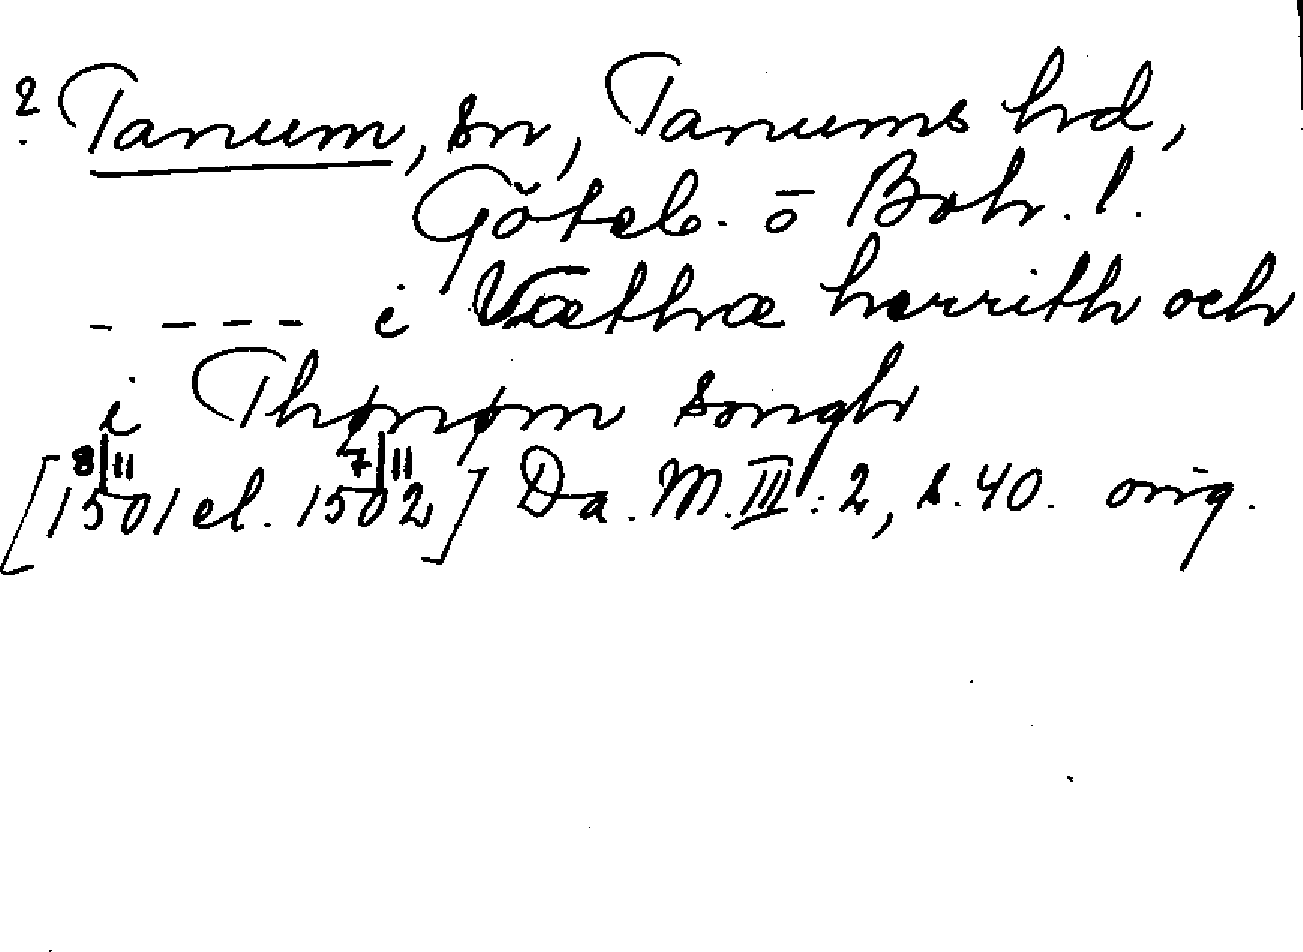 ? Tanum, sn, Tanums hrd,
Göteb. ō Boh. l.
- - - - i Væthræ herrith och
i Thønøm songh
8/11 7/11
[1501 el. 1502] Da. M. III: 2, s. 40. orig.